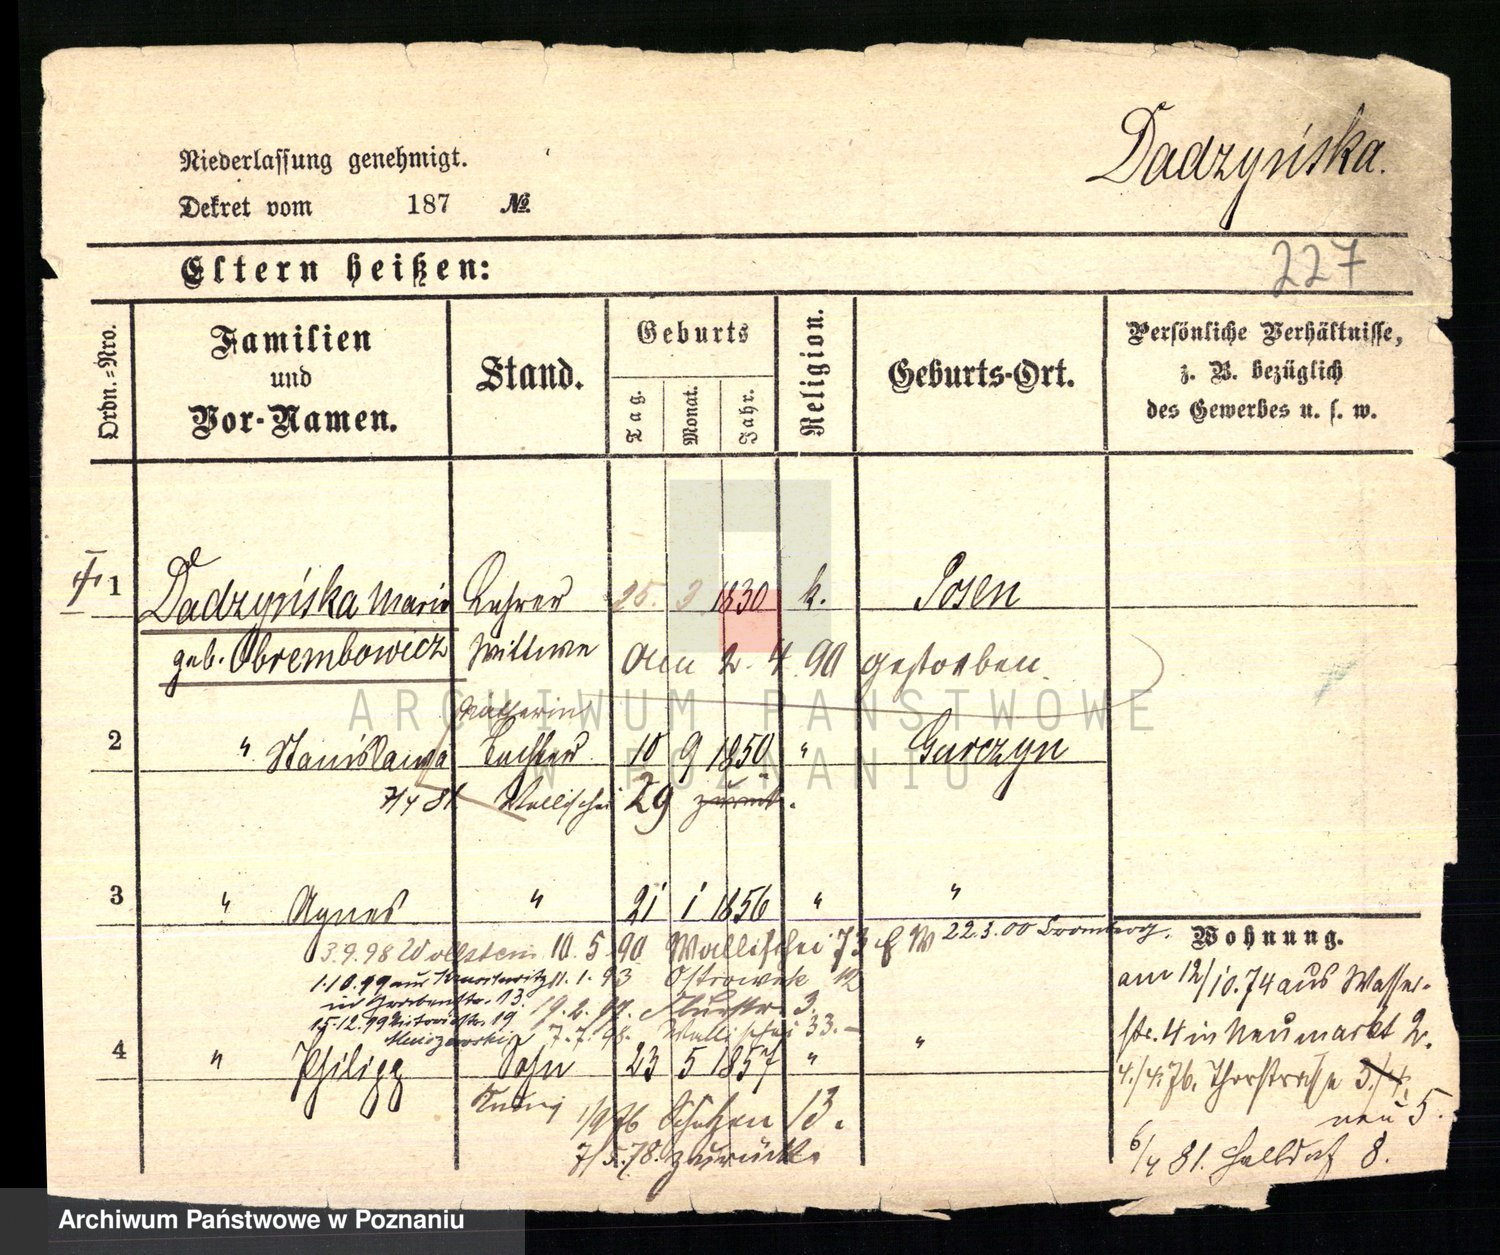 Dadzyńska.
Niederlassung genehmigt.
Dekret vom 187 No.
227
Eltern heißen:
Ordn.-Nro.
Familien
und
Vor-Namen.
Stand.
Geburts
Tag.
Monat.
Jahr.
Religion.
Geburts-Ort.
Persönliche Verhältnisse,
z. B. bezüglich
des Gewerbes u. s. w.
1 Dadzyńska Marie Lehrer 25. 3 1830 k. Posen
geb. Obrembowicz Wittwe am 2. 4. 90 gestorben.
2 " Stanislawa Tochter 10 9 1850 " Gurczyn
7/4 81 Wallischei 29 zurück.
3 " Agnes " 21 1 1856 " "
3.9.98 Wollstein 10.5.90 Wallischei 73 22.3.00 Bromberg.
1.10.99 aus 11.1.93 Ostrowek 12
in Grabenstr. 13. 19.2. 3.
15.12.99 Victoriastr. 19 7.7.98. Wallischei 33.
4 " Philipp Sohn 23 5 1857 " "
1/9 76 Schützen 13.
7/5.78. zurück.
Wohnung.
am 12/10.74 aus Wasser-
str. 4 in Neumarkt 2.
4./4. 76. Thorstrasse 3./4.
neu 5.
6/4 81. Halldorf 8.
ARCHIWUM PAŃSTWOWE
W POZNANIU
Archiwum Państwowe w Poznaniu